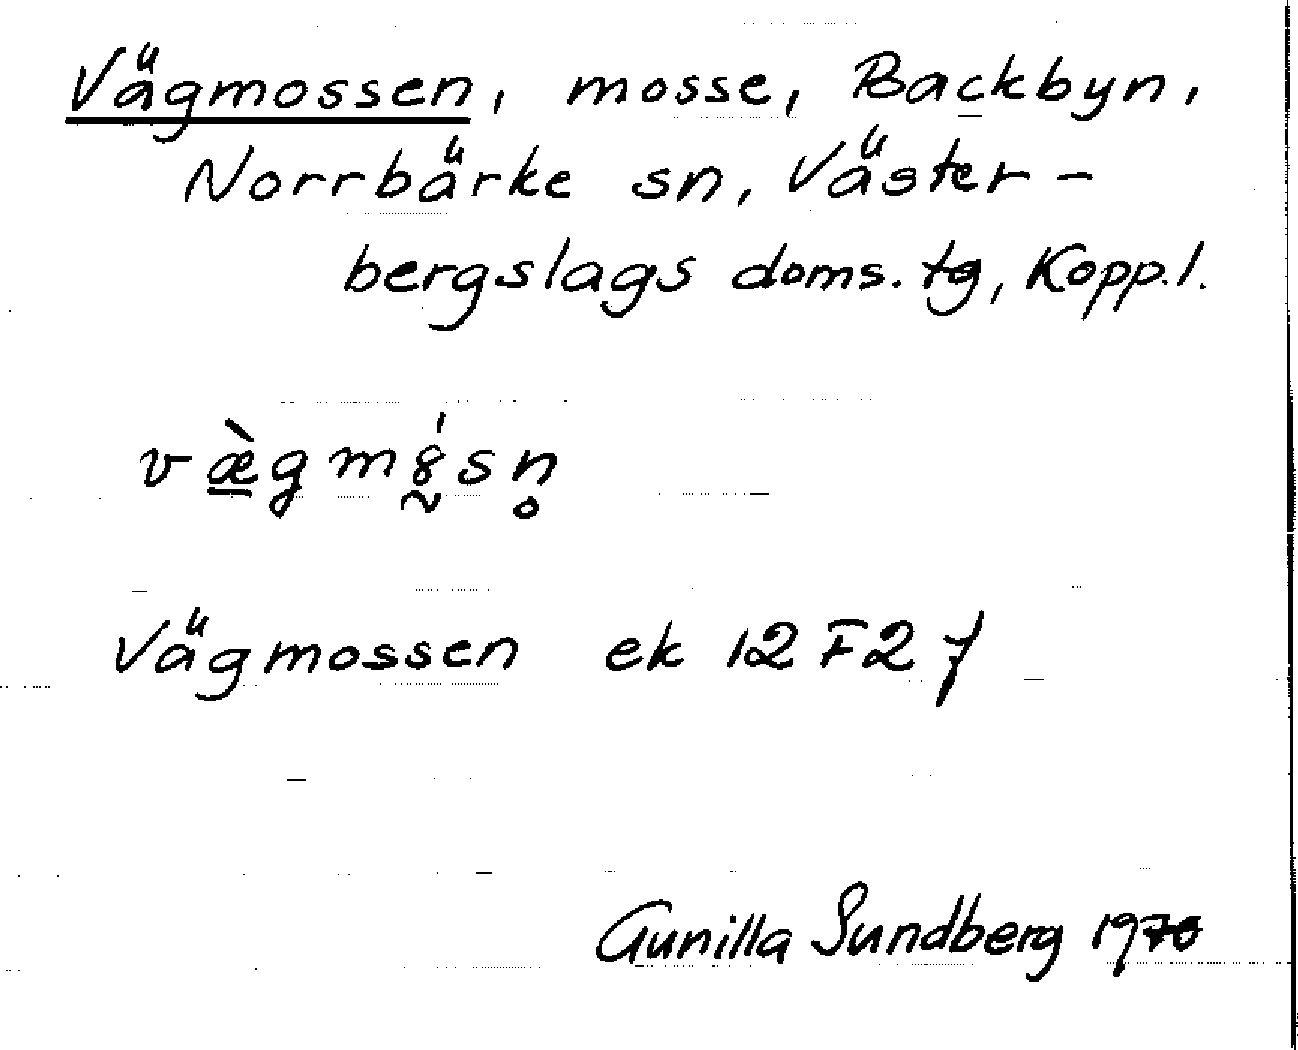 Vägmossen, mosse, Backbyn,
Norrbärke sn, Väster-
bergslags doms. tg, Kopp.l.
væ̱̀gmȣ̰́sn̥
Vägmossen ek 12 F 2 f
Gunilla Sundberg 1976